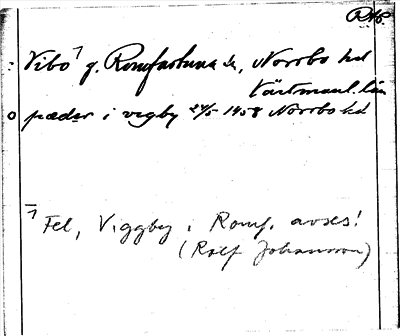 Rfs.
: Vibo ⁊ g. Romfartuna sn, Norrbo hd
Västmanl. län
o pæder i vigby 24/5 1458 Norrbo hd
⁊ Fel, Viggby i Romf. avses!
(Rolf Johansson)